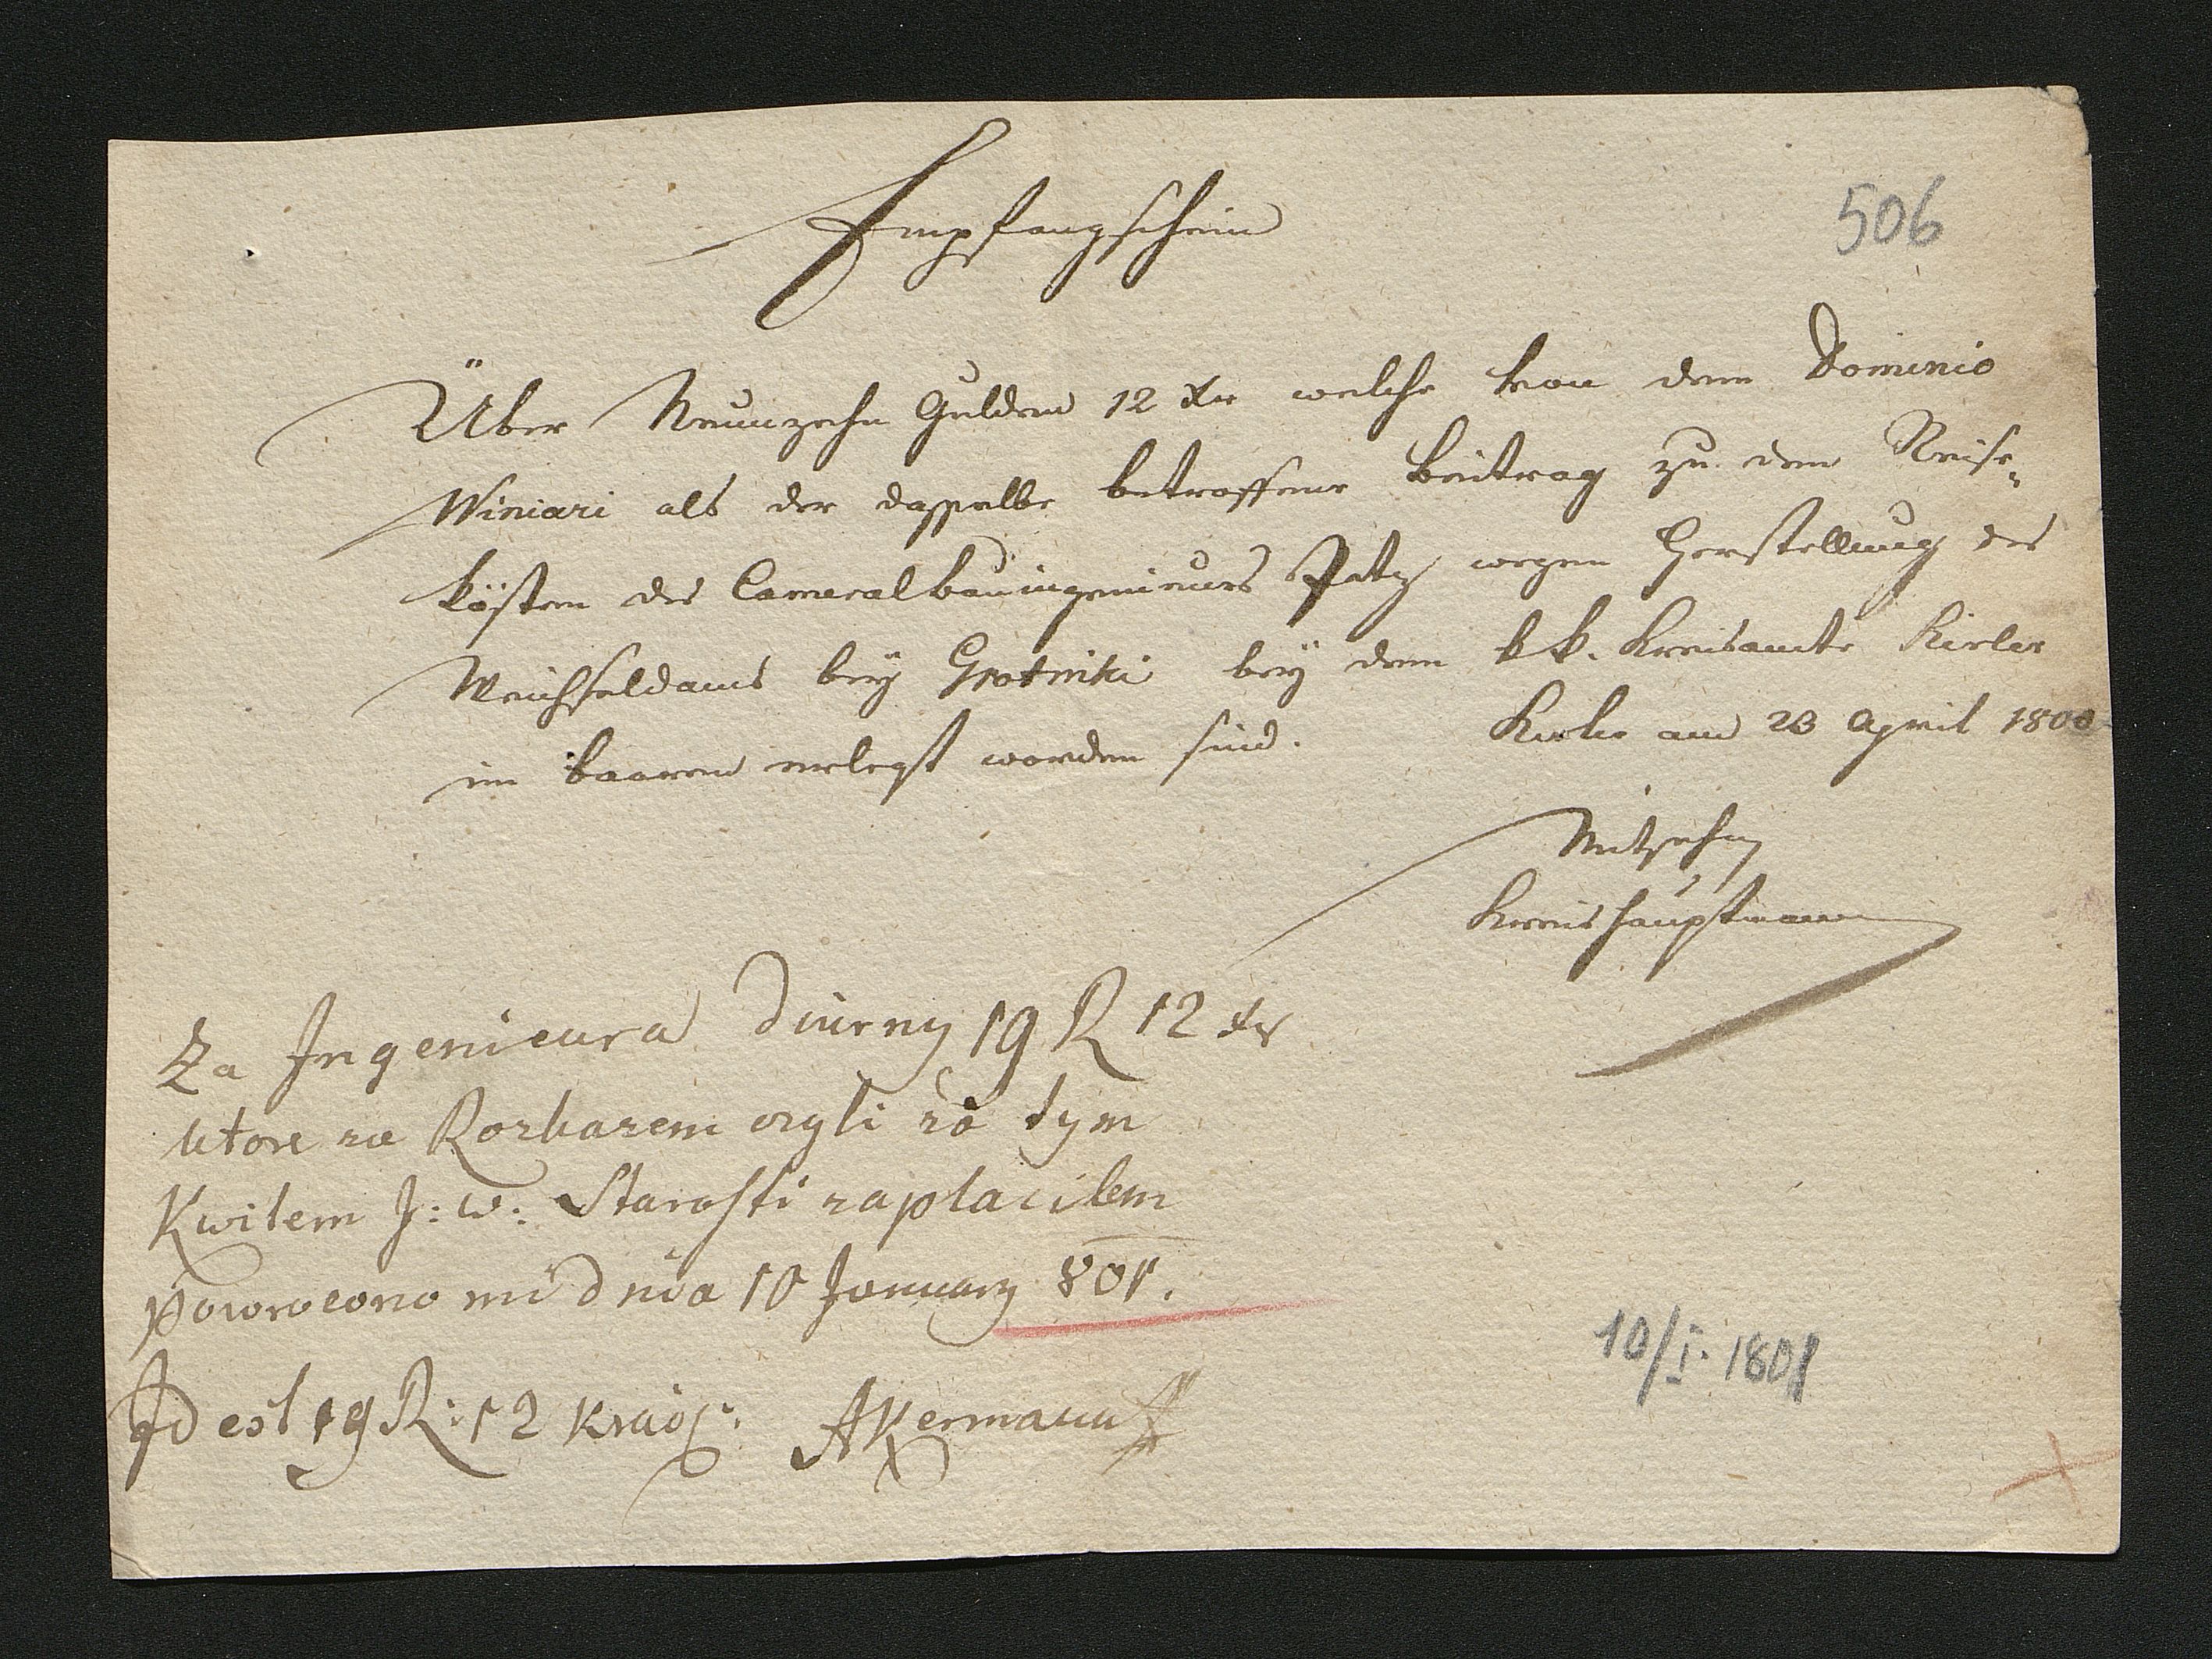 Empfangschein
506
Über Neunzehn Gulden 12 xr welche von dem Dominio
Winiari als der dasselbe betroffene Beitrag zu den Reise-
kösten des Cameralbauingenieurs Patz wegen Herstellung des
Weichseldams beÿ Grotniki beÿ dem k.k. Kreisamte Kielce
im baaren erlegt worden sind.
Kielce am 23 April 1800
Kreishauptmann
Za Jngenieura diurny 19 R 12 xr
ktore za Rozkazem czyli za tym
Kwitem J: W: Starosti zaplacilem
powrocono mi dnia 10 January 801.
Jd est 19 R: 12 Akermann
10/I. 1801